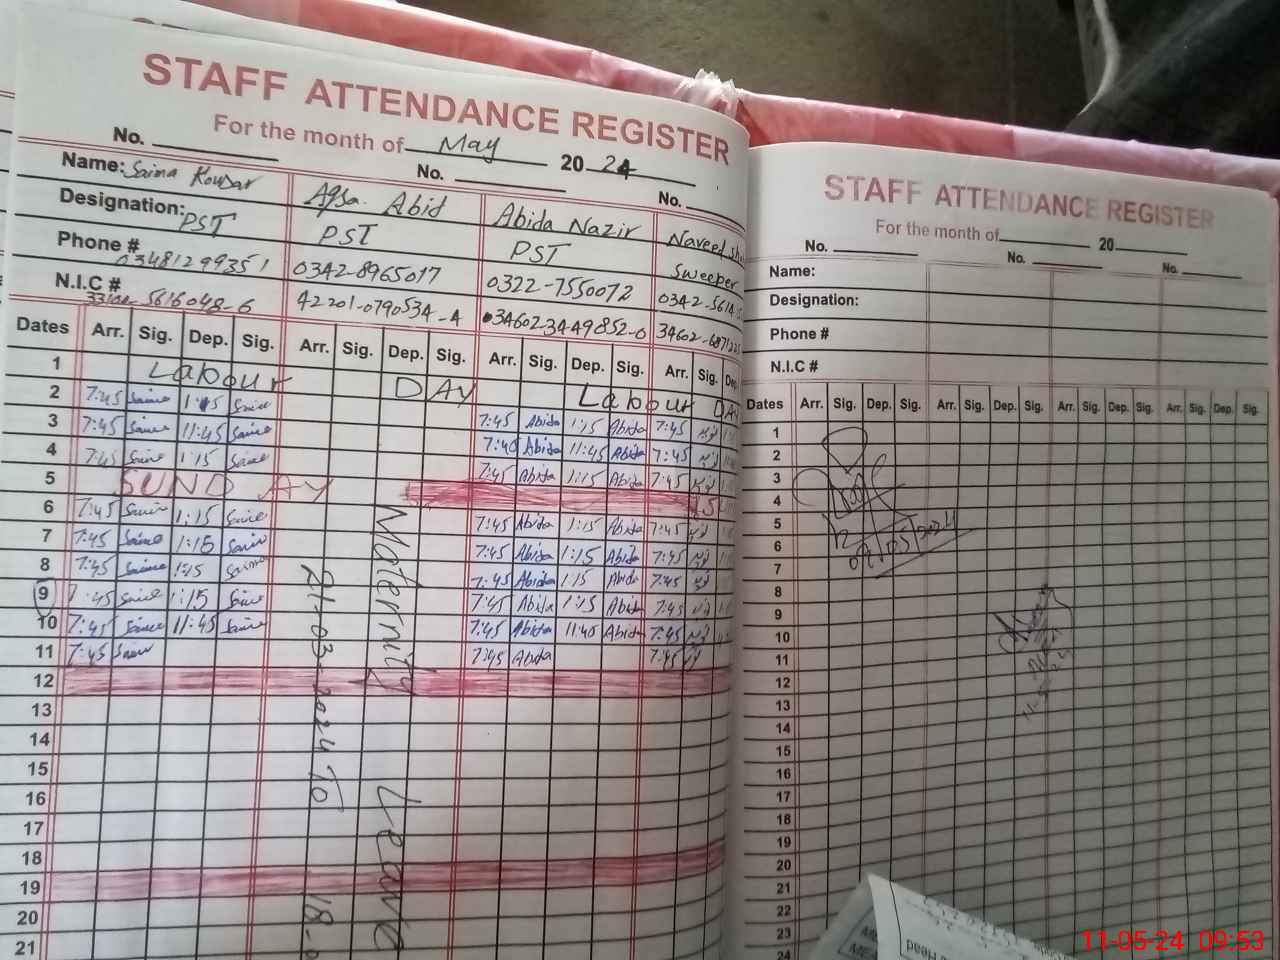 STAFF ATTENDANCE REGISTER
For the month of May 20 24
No. No. No.
Name: Saima Kousar Aqsa Abid Abida Nazir Naveed
Designation: PST PST PST Sweeper
Phone # 03481299351 0342-8965017 0322-7550072 0342-5614
N.I.C # 5616048-6 42201-0790534-4 34602-3449852-0 34602-6871225
Dates Arr. Sig. Dep. Sig. Arr. Sig. Dep. Sig. Arr. Sig. Dep. Sig. Arr. Sig.
1 Labour DAY Labour DAY
2 7:45 Saima 1:15 Saima 7:45 Abida 1:15 Abida 7:45
3 7:45 Saima 11:45 Saima 7:40 Abida 11:45 Abida 7:45
4 7:45 Saima 1:15 Saima 7:45 Abida 1:15 Abida 7:45
5 SUNDAY
6 7:45 Saima 1:15 Saima 7:45 Abida 1:15 Abida 7:45
7 7:45 Saima 1:15 Saima 7:45 Abida 1:15 Abida 7:45
8 7:45 Saima 1:15 Saima 7:45 Abida 1:15 Abida 7:45
9 7:45 Saima 1:15 Saima 7:45 Abida 1:15 Abida 7:45
10 7:45 Saima 11:45 Saima 7:45 Abida 11:40 Abida 7:45
11 7:45 Saima 7:45 Abida 7:45
12
13
14
15
16
17
18
19
20
21
Maternity Leave
21-03-2024 To 18-
STAFF ATTENDANCE REGISTER
For the month of 20
No. No. No.
Name:
Designation:
Phone #
N.I.C #
Dates Arr. Sig. Dep. Sig. Arr. Sig. Dep. Sig. Arr. Sig. Dep. Sig. Arr. Sig. Dep. Sig.
1
2
3
4
5
6
7
8
9
10
11
12
13
14
15
16
17
18
19
20
21
22
23
24
Head
11-05-24 09:53